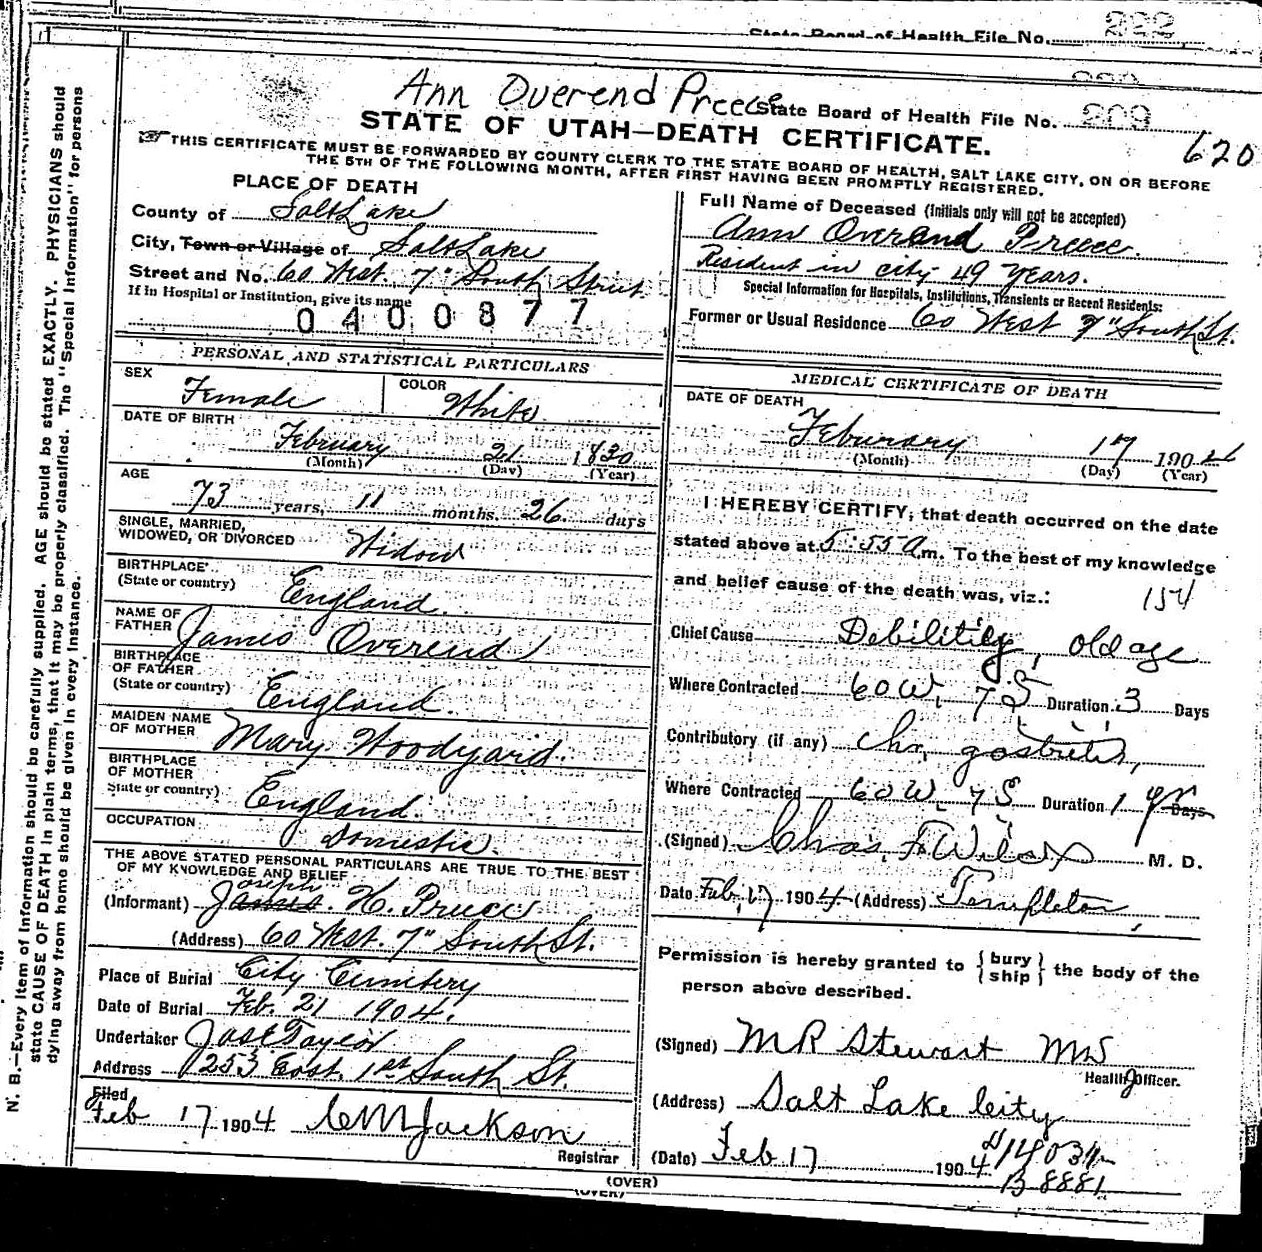 State Board of Health File No. 222
Ann Overend Preece State Board of Health File No. 209
620
STATE OF UTAH—DEATH CERTIFICATE.
THIS CERTIFICATE MUST BE FORWARDED BY COUNTY CLERK TO THE STATE BOARD OF HEALTH, SALT LAKE CITY, ON OR BEFORE
THE 5TH OF THE FOLLOWING MONTH, AFTER FIRST HAVING BEEN PROMPTLY REGISTERED.
N. B.—Every item of information should be carefully supplied. AGE should be stated EXACTLY. PHYSICIANS should
state CAUSE OF DEATH in plain terms, that it may be properly classified. The "Special Information" for persons
dying away from home should be given in every instance.
PLACE OF DEATH
County of Salt Lake
City, Town or Village of Salt Lake
Street and No. 60 West. 7" South Street
If in Hospital or Institution, give its name
0400877
PERSONAL AND STATISTICAL PARTICULARS
SEX Female COLOR White
DATE OF BIRTH
February 21 1830
(Month) (Day) (Year)
AGE
73 years, 11 months, 26 days
SINGLE, MARRIED,
WIDOWED, OR DIVORCED Widow
BIRTHPLACE
(State or country) England.
NAME OF
FATHER James Overend
BIRTHPLACE
OF FATHER
(State or country) England.
MAIDEN NAME
OF MOTHER Mary Woodyard.
BIRTHPLACE
OF MOTHER
State or country) England.
OCCUPATION
Domestic.
THE ABOVE STATED PERSONAL PARTICULARS ARE TRUE TO THE BEST
OF MY KNOWLEDGE AND BELIEF
Joseph
(Informant) James. H. Preece
(Address) 60 West. 7" South St.
Place of Burial City Cemetery
Date of Burial Feb. 21 1904.
Undertaker Jos E Taylor
Address 253 East. 1st South St.
Filed
Feb 17 1904 C M Jackson
Registrar
Full Name of Deceased (Initials only will not be accepted)
Ann Overend Preece.
Resident in city 49 Years.
Special Information for Hospitals, Institutions, Transients or Recent Residents:
Former or Usual Residence 60 West 7" South St.
MEDICAL CERTIFICATE OF DEATH
DATE OF DEATH
February 17 190
(Month) (Day) (Year)
I HEREBY CERTIFY, that death occurred on the date
stated above at 5:55 A.m. To the best of my knowledge
and belief cause of the death was, viz.: 154
Chief Cause Debility, old age
Where Contracted 60 W. 7 S. Duration 3 Days
Contributory (if any) Chr. gastritis,
Where Contracted 60 W. 7 S Duration 1 yr Days
(Signed) Chas. F. Wilcox M. D.
Date Feb, 17 1904 (Address) Templeton,
Permission is hereby granted to { bury ship } the body of the
person above described.
(Signed) M R Stewart MD
Health Officer.
(Address) Salt Lake City
(Date) Feb 17 1904
B 8881
(OVER)
(OVER)